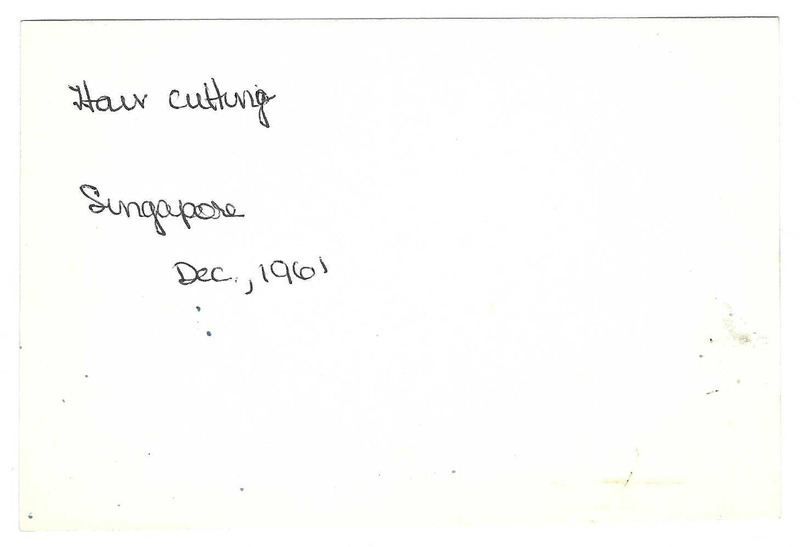 Hair cutting
Singapore
Dec., 1961